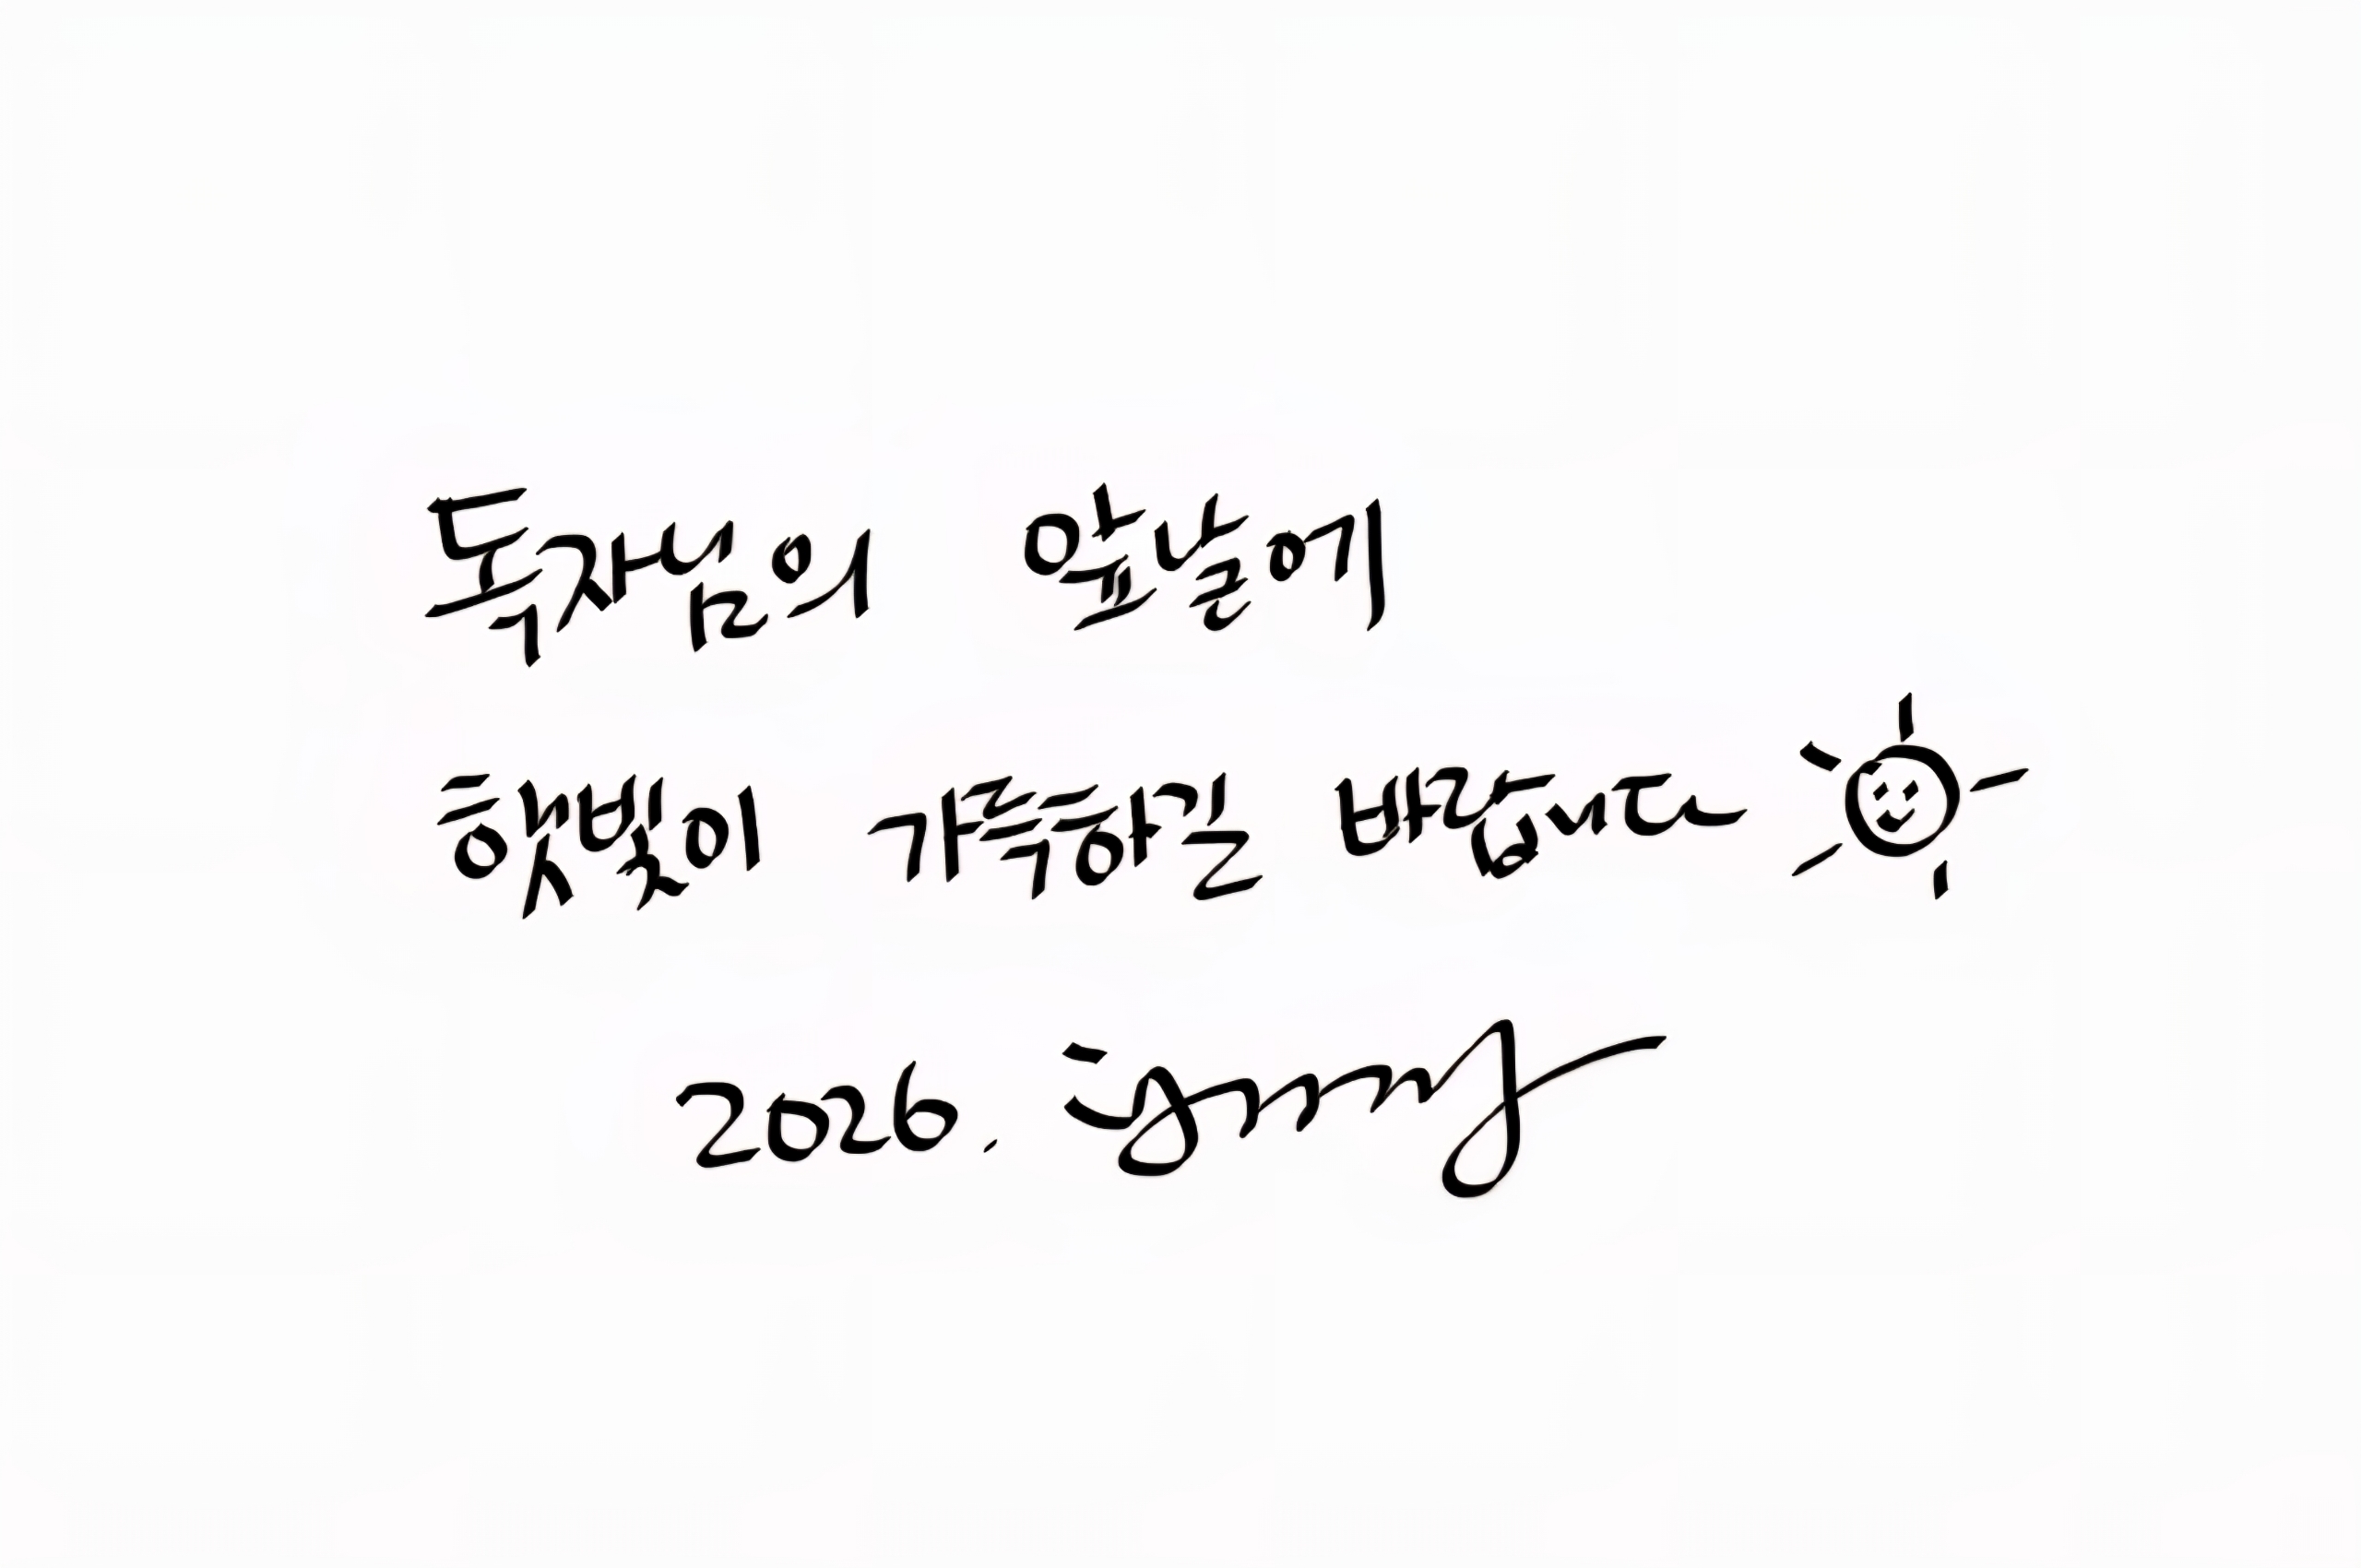 독자님의 앞날에
햇빛이 가득하길 바랍니다
2026.